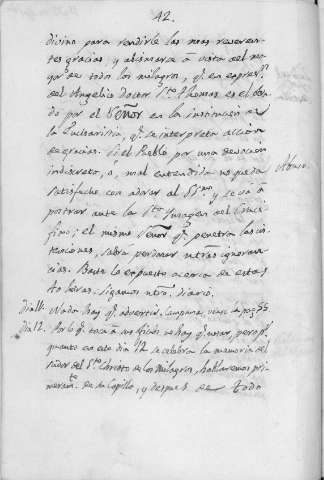 42.
divino para rendirle las mas reveren-
tes gracias, y abismarse à vista del ma
yor de todos los milagros, q.e en expres.n
del Angelico Doctor S.to Thomas es el obra-
do por el Señor en la institucion de
la Eucharistia, q.e se interpreta accion
de gracias. Si el Pueblo por una devocion
indiscreta, o, mal entendida no queda
satisfecho con adorar al SS.mo y se va à
postrar ante la S.ta Imagen del Cruci-
fixo; el mismo Señor q.e penetra las in-
tenciones, sabrà perdonar ntras ignoran-
cias. Baste lo expuesto acerca de estas
40 horas. Sigamos ntro. diario.
dia 11. Nada hay q.e advertir. Campana, vease la pag. 55
dia 12. Por lo q.e toca à los oficios no hay q.e notar, pero p.r
quanto en este dia 12 se celebra la memoria del
Señor del S.to Christo de los Milagros, hablaremos pri-
meram.te de su Capilla, y despues de todo